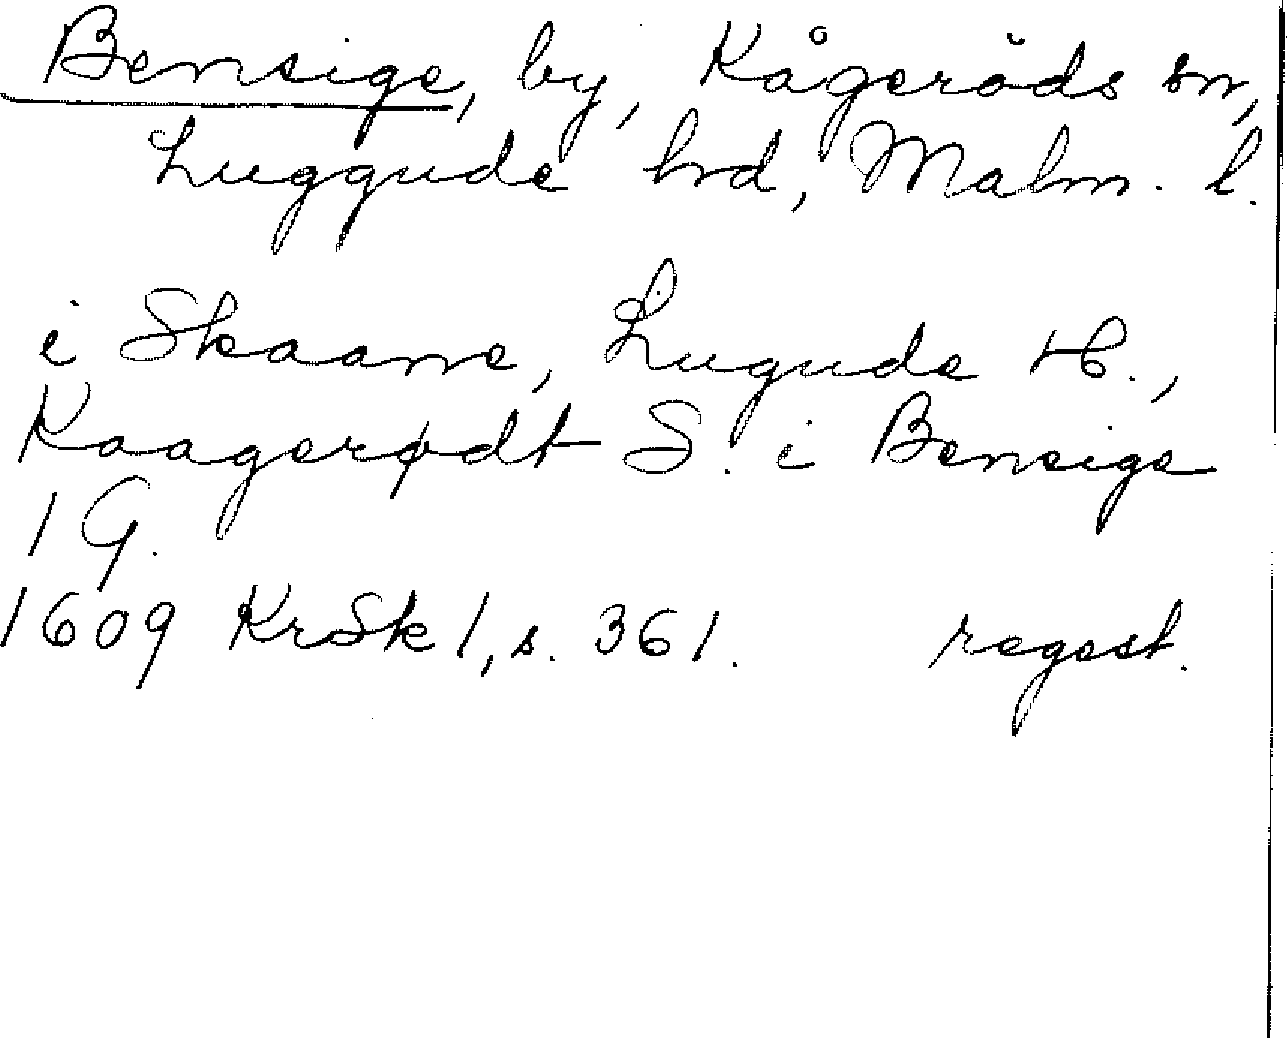 Bensige, by, Kågeröds sn,
Luggude hrd, Malm. l.
i Skaane, Lugude H.,
Kaagerødt S. i Bensige
1 G.
1609 KrSk 1, s. 361. regest.